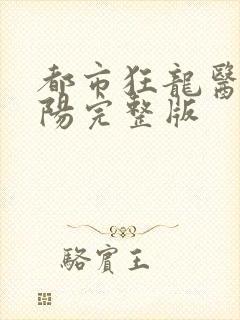 都市狂龍醫
陽完整版
駱賓王